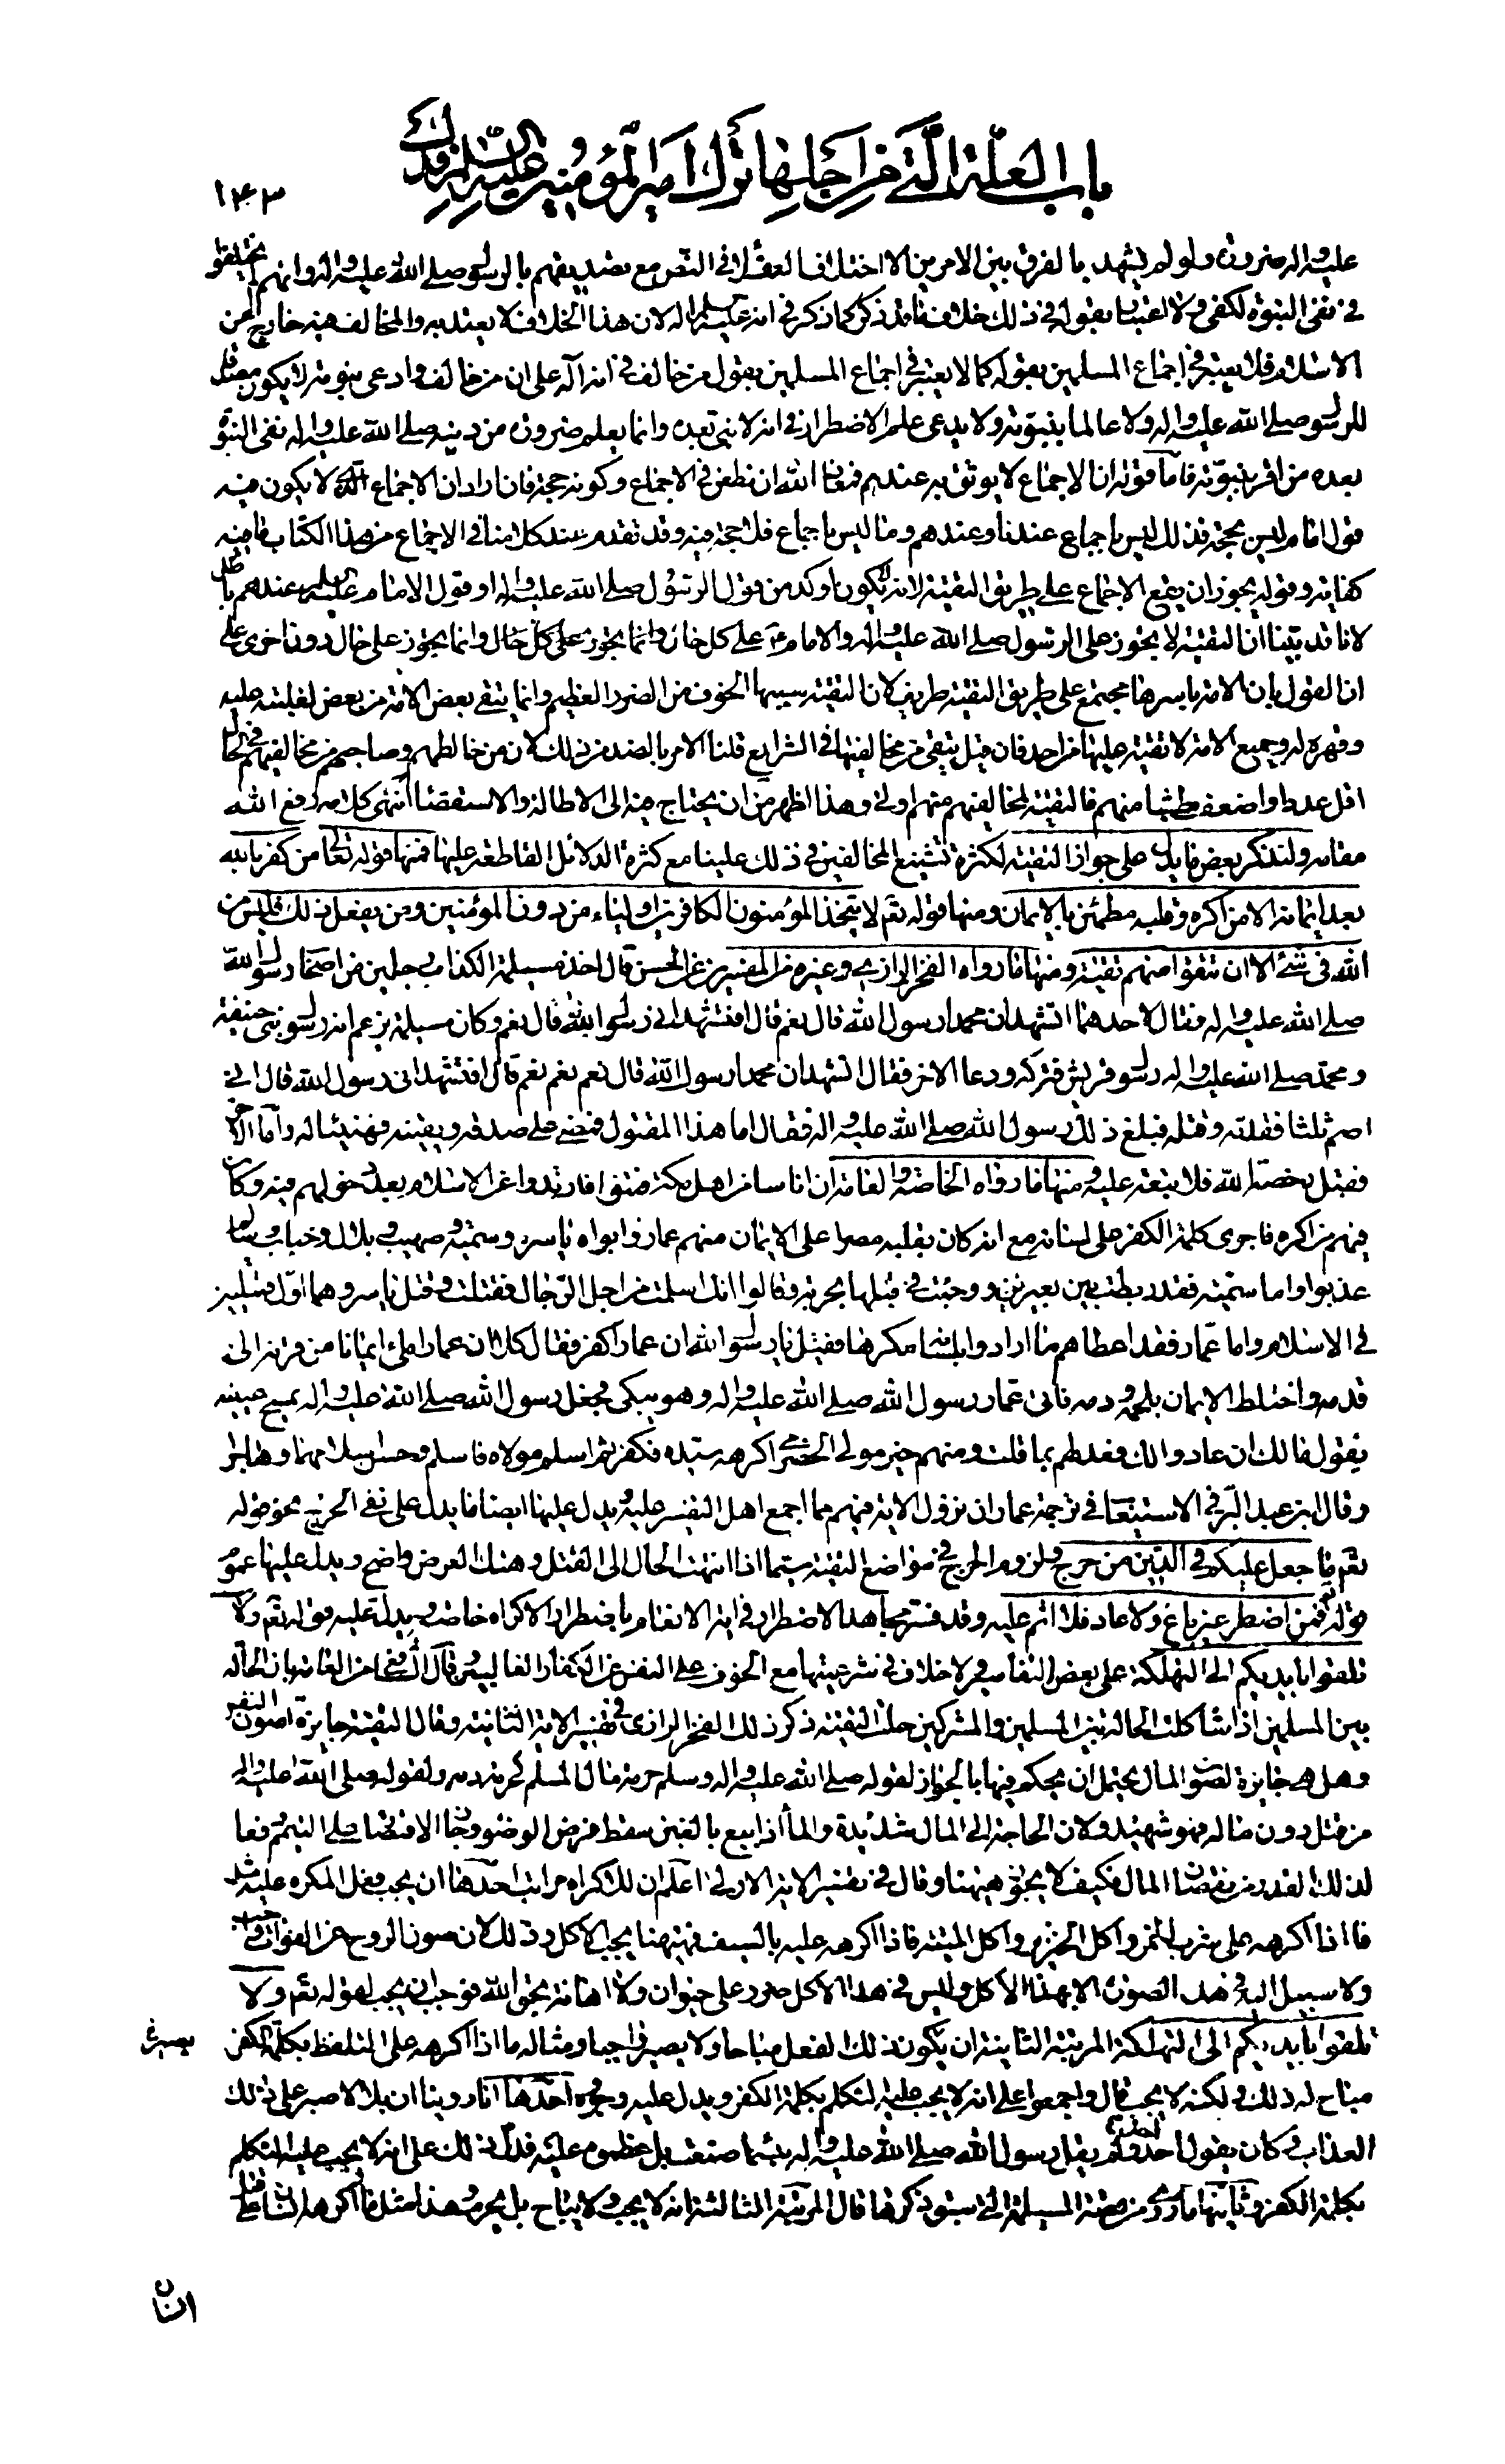 باب العلة التي من اجلها ترك امير المؤمنين عليه السلام فدك
١٤٣
عليه واله ضرورة ولو لم يشهد بالفرق بين الامرين الا اختلاف العقلاء في النص مع تصديقهم بالرسول صلى الله عليه واله وانهم لم يختلفوا
في نفي النبوة لكفى ولا اعتبار بقوله في ذلك خلاف ما قد ذكر كما ذكر في انه عليه السلم اله لان هذا الخلاف لا يعتد به والمخالف فيه خارج عن
الاسلام فلا يعتبر في اجماع المسلمين بقوله كما لا يعتبر في اجماع المسلمين بقول من خالف في انه آله على ان من خالف وادعى نبوته لا يكون مصدقا
للرسول صلى الله عليه واله ولا عالما بنبوته ولا يدعى علم الاضطرار في انه لا نبي بعده وانما يعلم ضرورة من دينه صلى الله عليه واله نفى النبوة
بعده من اقر بنبوته فاما قوله ان الاجماع لا يوثق به عندهم فمعاذ الله ان نطعن في الاجماع وكونه حجة فان اراد ان الاجماع الذي لا يكون فيه
قول امام ليس بحجة فذلك ليس باجماع عندنا وعندهم وما ليس باجماع فلا حجة فيه وقد تقدم عند كلامنا في الاجماع من هذا الكتاب ما فيه
كفاية وقوله يجوز ان يقع الاجماع على طريق التقية لانه لا يكون اوكد من قول الرسول صلى الله عليه واله او قول الامام عليه السلم عندهم باطل
لانا قد بينا ان التقية لا يجوز على الرسول صلى الله عليه واله والامام ع على كل حال وانما يجوز على حال دون اخرى على
ان القول بان الامة باسرها مجتمع على طريق التقية طريف لان التقية سببها الخوف من الضرر العظيم وانما يتقى بعض الامة من بعض لغلبته عليه
وقهره له وجميع الامة لا تقية عليها من احد فان قيل يتقى من مخالفيها في الشرايع قلنا الامر بالضد من ذلك لان من خالطهم وصاحبهم من مخالفيهم في الحال
اقل عددا واضعف بطشا منهم فالتقية لمخالفيهم منهم اولى وهذا اظهر من ان يحتاج فيه الى الاطالة والاستقصاء انتهى كلامه رفع الله
مقامه ولنذكر بعض ما يدل على جواز التقية لكثرة تشنيع المخالفين في ذلك علينا مع كثرة الدلائل القاطعة عليها فمنها قوله تعالى من كفر بالله
بعد ايمانه الا من اكره وقلبه مطمئن بالايمان ومنها قوله تعم لا يتخذ المؤمنون الكافرين اولياء من دون المؤمنين ومن يفعل ذلك فليس من
الله في شئ الا ان تتقوا منهم تقية ومنها ما رواه الفخر الرازي وغيره من المفسرين عن الحسن قال اخذ مسيلمة الكذاب رجلين من اصحاب رسول الله
صلى الله عليه واله فقال لاحدهما اتشهد ان محمدا رسول الله قال نعم قال افتشهد اني رسول الله قال نعم وكان مسيلمة يزعم انه رسول بني حنيفة
ومحمد صلى الله عليه واله رسول قريش فتركه ودعا الاخر فقال اتشهد ان محمدا رسول الله قال نعم نعم نعم قال افتشهد اني رسول الله قال اني
اصم ثلثا فقدمه وقتله فبلغ ذلك رسول الله صلى الله عليه واله فقال اما هذا المقتول فمضى على صدقه ويقينه فهنيئا له واما الاخر
فقبل رخصة الله فلا تبعة عليه ومنها ما رواه الخاصة والعامة ان اناسا من اهل مكة فتنوا فارتدوا عن الاسلام بعد دخولهم فيه وكان
فيهم من اكره فاجرى كلمة الكفر على لسانه مع انه كان بقلبه مصرا على الايمان منهم عمار وابواه ياسر وسمية وصهيب وبلال وخباب وسالم
عذبوا واما سمية فقد ربطت بين بعيرين ووجئت في قبلها بحربة وقالوا انك اسلمت من اجل الرجال فقتلت وقتل ياسر وهما اول قتيلين
في الاسلام واما عمار فقد اعطاهم ما ارادوا بلسانه مكرها فقيل يا رسول الله ان عمارا كفر فقال كلا ان عمارا ملئ ايمانا من قرنه الى
قدمه واختلط الايمان بلحمه ودمه فاتى عمار رسول الله صلى الله عليه واله وهو يبكى فجعل رسول الله صلى الله عليه واله يمسح عينيه
يقول مالك ان عادوا لك فعد لهم بما قلت ومنهم خير مولى الحضرمي اكرهه سيده فكفر ثم اسلم مولاه فاسلم وحسن اسلامهما وهاجرا
وقال ابن عبد البر في الاستيعاب في ترجمة عمار ان نزول الاية فيهم مما اجمع اهل التفسير عليه ويدل عليها ايضا ما يدل على نفى الحرج نحو قوله
تعم ما جعل عليكم في الدين من حرج ولزوم الحرج في مواضع التقية سيما اذا انتهت الحال الى القتل وهتك العرض واضح ويدل عليها عموم
قوله تعم فمن اضطر غير باغ ولا عاد فلا اثم عليه وقد فسر مجاهد الاضطرار في اية الانعام باضطرار الاكراه خاصة ويدل عليه قوله تعم ولا
تلقوا بايديكم الى التهلكة على بعض التفاسير ولا خلاف في شرعيتها مع الخوف على النفس من الكفار الغالبين وقال الشافعي من العامة بان الحالة
بين المسلمين اذا شاكلت الحالة بين المسلمين والمشركين حلت التقية ذكر ذلك الفخر الرازي في تفسير الاية الثانية وقال التقية جايزة لصون النفس
وهل هي جايزة لصون المال يحتمل ان يحكم فيها بالجواز لقوله صلى الله عليه واله وسلم حرمة مال المسلم كحرمة دمه ولقوله صلى الله عليه واله
من قتل دون ماله فهو شهيد ولان الحاجة الى المال شديدة والماء اذا بيع بالغبن سقط فرض الوضوء وجاز الاقتصار على التيمم دفعا
لذلك القدر من نقصان المال فكيف لا يجوز هيهنا وقال في تفسير الاية الاولى اعلم ان للاكراه مراتب احدها ان يجب فعل المكره عليه مثل
ما اذا اكرهه على شرب الخمر واكل الخنزير واكل الميتة فاذا اكرهه عليه بالسيف فهيهنا يجب الاكل وذلك لان صون الروح عن الفوات واجب
ولا سبيل اليه في هذه الصورة الا بهذا الاكل وليس في هذا الاكل ضرر على حيوان ولا اهانة بحق الله فوجب ان يجب لقوله تعم ولا
تلقوا بايديكم الى التهلكة المرتبة الثانية ان يكون ذلك الفعل مباحا ولا يصير واجبا ومثاله ما اذا اكرهه على التلفظ بكلمة الكفر
يصير
مباح له ذلك ولكنه لا يجب قال واجمعوا على انه لا يجب عليه التكلم بكلمة الكفر ويدل عليه وجوه احدها انا روينا ان بلالا صبر على ذلك
العذاب وكان يقول احد احد ولم يقل رسول الله صلى الله عليه واله بئسما صنعت بل عظموه عليه فدل ذلك على انه لا يجب عليه التكلم
بكلمة الكفر وثانيها ما روى من قصة المسيلمة التي سبق ذكرها قال المرتبة الثالثة انه لا يجب ولا يباح بل يحرم وهذا مثل ما اكرهه انسان على قتل
انسان